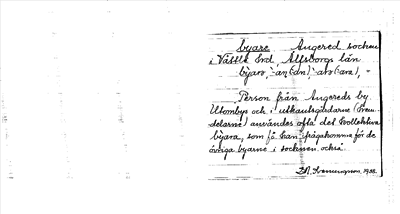 byare Angered socken
i Vättle hrd Älfsborgs län
byarə, -ån (än), -arə (ara), =
Person från Angereds by.
Utombys och i utkantsgårdarne
delarne) användes ofta det kollektiva
byara, som få kan frågakomma för de
övriga byarne i socknen också.
1932.